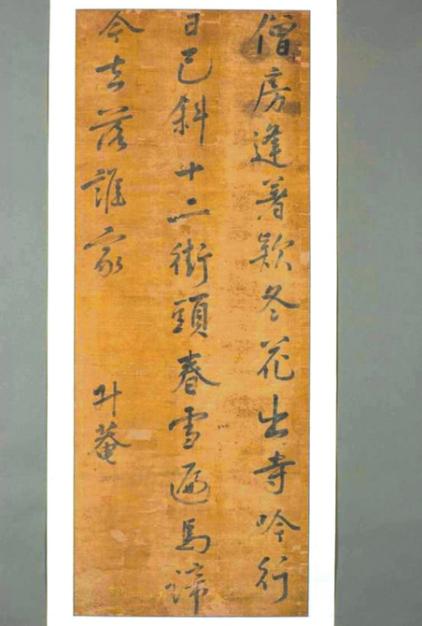 僧房逢著款冬花出寺吟行
日已斜十二街頭春雪遍馬蹄
今去落誰家
升菴